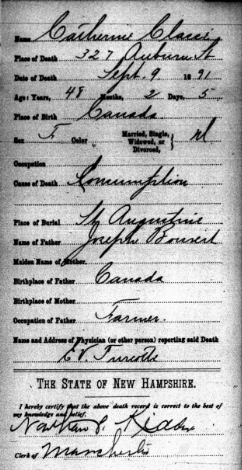 Name Catherine Classi
Place of Death 327 Auburn St
Date of Death Sept. 9 1891
Age: Years, 48 Months, 2 Days, 5
Place of Birth Canada
Sex F Color Married, Single, Widowed, or Divorced, M
Occupation
Cause of Death Consumption
Place of Burial St Augustine
Name of Father Joseph
Maiden Name of Mother
Birthplace of Father Canada
Birthplace of Mother
Occupation of Father Farmer.
Name and Address of Physician (or other person) reporting said Death
E V Turcotte
THE STATE OF NEW HAMPSHIRE.
I hereby certify that the above death record is correct to the best of
my knowledge and belief.
Nathan P.
Clerk of Manchester